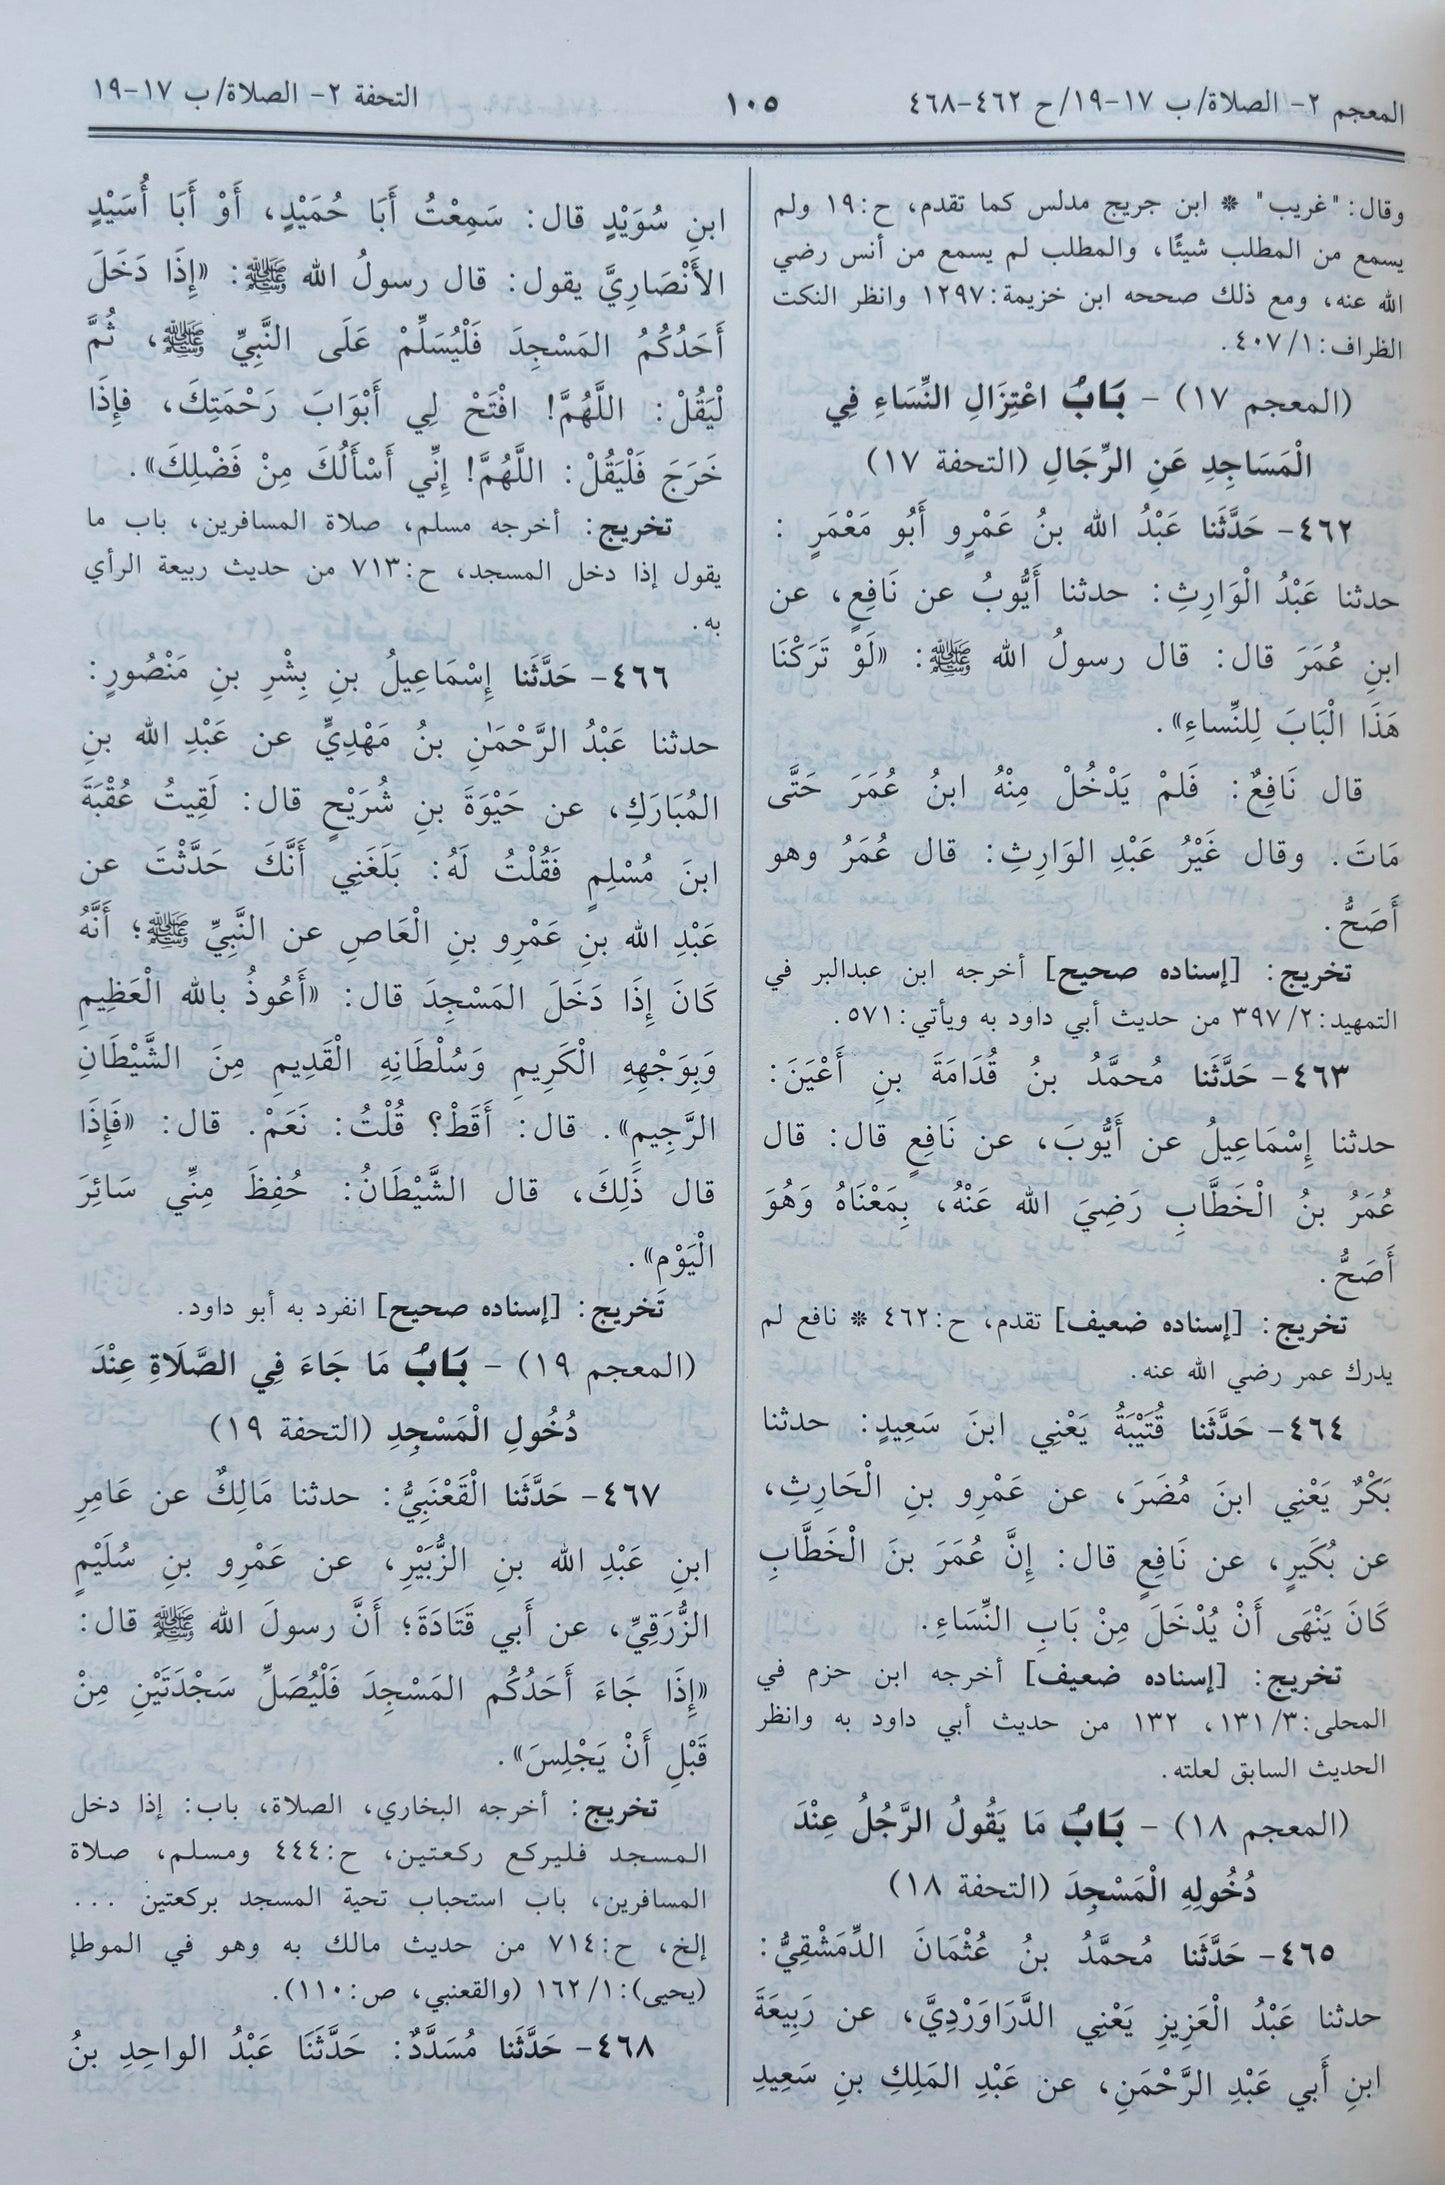 المعجم ٢- الصلاة/ ب ١٧-١٩/ ح ٤٦٢-٤٦٨
١٠٥
التحفة ٢- الصلاة/ ب ١٧-١٩
وقال: "غريب" * ابن جريج مدلس كما تقدم، ح:١٩ ولم
يسمع من المطلب شيئًا، والمطلب لم يسمع من أنس رضي
الله عنه، ومع ذلك صححه ابن خزيمة:١٢٩٧ وانظر النكت
الظراف:١/ ٤٠٧.
(المعجم ١٧) - بَابُ اعْتِزَالِ النِّسَاءِ فِي
الْمَسَاجِدِ عَنِ الرِّجَالِ (التحفة ١٧)
٤٦٢- حَدَّثَنا عَبْدُ الله بنُ عَمْرٍو أَبُو مَعْمَرٍ :
حدثنا عَبْدُ الْوَارِثِ: حدثنا أَيُّوبُ عن نَافِعٍ، عن
ابنِ عُمَرَ قال: قال رسولُ الله ﷺ: «لَوْ تَرَكْنَا
هَذَا الْبَابَ لِلنِّساءِ».
قال نَافِعٌ: فَلمْ يَدْخُلْ مِنْهُ ابنُ عُمَرَ حَتَّى
مَاتَ. وقال غَيْرُ عَبْدِ الوَارِثِ: قال عُمَرُ وهو
أَصَحُّ.
تخريج: [إسناده صحيح] أخرجه ابن عبدالبر في
التمهيد:٢/ ٣٩٧ من حديث أبي داود به ويأتي:٥٧١.
٤٦٣- حَدَّثَنا مُحمَّدُ بنُ قُدَامَةَ بنِ أَعْيَنَ:
حدثنا إِسْمَاعِيلُ عن أَيُّوبَ، عن نَافِعٍ قال: قال
عُمَرُ بنُ الْخَطَّابِ رَضِيَ الله عَنْهُ، بِمَعْنَاهُ وَهُوَ
أَصَحُّ.
تخريج: [إسناده ضعيف] تقدم، ح:٤٦٢ * نافع لم
يدرك عمر رضي الله عنه.
٤٦٤- حَدَّثَنا قُتَيْبَةُ يَعْنِي ابنَ سَعِيدٍ: حدثنا
بَكْرٌ يَعْنِي ابنَ مُضَرَ، عن عَمْرِو بنِ الْحَارِثِ،
عن بُكَيرٍ، عن نَافِعٍ قال: إِنَّ عُمَرَ بنَ الْخَطَّابِ
كَانَ يَنْهَى أَنْ يُدْخَلَ مِنْ بَابِ النِّسَاءِ.
تخريج: [إسناده ضعيف] أخرجه ابن حزم في
المحلى:٣/ ١٣١، ١٣٢ من حديث أبي داود به وانظر
الحديث السابق لعلته.
(المعجم ١٨) - بَابُ مَا يَقُولُ الرَّجُلُ عِنْدَ
دُخُولِهِ الْمَسْجِدَ (التحفة ١٨)
٤٦٥- حَدَّثَنا مُحمَّدُ بنُ عُثْمَانَ الدِّمَشْقِيُّ:
حدثنا عَبْدُ الْعَزِيزِ يَعْنِي الدَّرَاوَرْدِيَّ، عن رَبِيعَةَ
ابنِ أَبي عَبْدِ الرَّحْمَنِ، عن عَبْدِ المَلِكِ بنِ سَعِيدِ
ابنِ سُوَيْدٍ قال: سَمِعْتُ أَبَا حُمَيْدٍ، أَوْ أَبَا أُسَيْدٍ
الأَنْصَارِيَّ يقول: قال رسولُ الله ﷺ: «إِذَا دَخَلَ
أَحَدُكُمُ المَسْجِدَ فَلْيُسَلِّمْ عَلَى النَّبِيِّ ﷺ، ثُمَّ
لْيَقُلْ: اللَّهُمَّ! افْتَحْ لِي أَبْوَابَ رَحْمَتِكَ، فإِذَا
خَرَجَ فَلْيَقُلْ: اللَّهُمَّ! إِنِّي أَسْأَلُكَ مِنْ فَضْلِكَ».
تخريج: أخرجه مسلم، صلاة المسافرين، باب ما
يقول إذا دخل المسجد، ح:٧١٣ من حديث ربيعة الرأي
به.
٤٦٦- حَدَّثَنا إِسْمَاعِيلُ بنِ بِشْرِ بنِ مَنْصُورٍ:
حدثنا عَبْدُ الرَّحْمٰنِ بنُ مَهْدِيٍّ عن عَبْدِ الله بنِ
المُبَارَكِ، عن حَيْوَةَ بنِ شُرَيْحٍ قال: لَقِيتُ عُقْبَةَ
ابنَ مُسْلِمٍ فَقُلْتُ لَهُ: بَلَغَنِي أَنَّكَ حَدَّثْتَ عن
عَبْدِ الله بنِ عَمْرِو بنِ الْعَاصِ عن النَّبِيِّ ﷺ؛ أَنَّهُ
كَانَ إِذَا دَخَلَ المَسْجِدَ قال: «أَعُوذُ بالله الْعَظِيمِ
وَبِوَجْهِهِ الْكَرِيمِ وَسُلْطَانِهِ الْقَدِيمِ مِنَ الشَّيْطَانِ
الرَّجِيمِ». قال: أَقَطْ؟ قُلْتُ: نَعَمْ. قال: «فَإِذَا
قال ذَلِكَ، قال الشَّيْطَانُ: حُفِظَ مِنِّي سَائِرَ
الْيَوْمِ».
تَخريج: [إسناده صحيح] انفرد به أبو داود.
(المعجم ١٩) - بَابُ مَا جَاءَ فِي الصَّلَاةِ عِنْدَ
دُخُولِ الْمَسْجِدِ (التحفة ١٩)
٤٦٧- حَدَّثَنا الْقَعْنَبِيُّ: حدثنا مَالِكٌ عن عَامِرِ
ابنِ عَبْدِ الله بنِ الزُّبَيْرِ، عن عَمْرِو بنِ سُلَيْمٍ
الزُّرَقِيِّ، عن أَبي قَتَادَةَ؛ أَنَّ رسولَ الله ﷺ قال:
«إِذَا جَاءَ أَحَدُكُم المَسْجِدَ فَلْيُصَلِّ سَجْدَتَيْنِ مِنْ
قَبْلِ أَنْ يَجْلِسَ».
تخريج: أخرجه البخاري، الصلاة، باب: إذا دخل
المسجد فليركع ركعتين، ح:٤٤٤ ومسلم، صلاة
المسافرين، باب استحباب تحية المسجد بركعتين ...
إلخ، ح:٧١٤ من حديث مالك به وهو في الموطإ
(يحيى):١/ ١٦٢ (والقعنبي، ص:١١٠).
٤٦٨- حَدَّثَنا مُسَدَّدٌ: حَدَّثَنَا عَبْدُ الواحِدِ بنُ